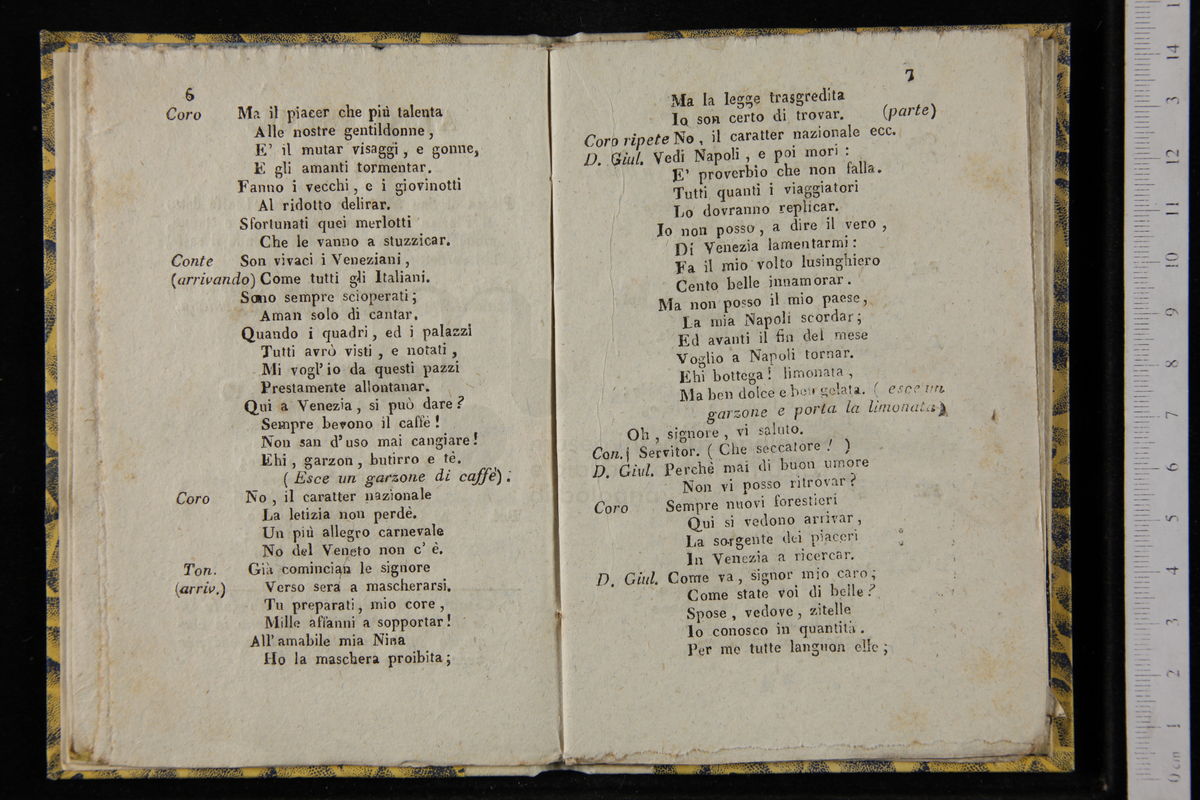 6
Coro Ma il piacer che più talenta
Alle nostre gentildonne,
E' il mutar visaggi, e gonne,
E gli amanti tormentar.
Fanno i vecchi, e i giovinotti
Al ridotto delirar.
Sfortunati quei merlotti
Che le vanno a stuzzicar.
Conte Son vivaci i Veneziani,
(arrivando) Come tutti gli Italiani.
Sono sempre scioperati;
Aman solo di cantar.
Quando i quadri, ed i palazzi
Tutti avrò visti, e notati,
Mi vogl'io da questi pazzi
Prestamente allontanar.
Qui a Venezia, si può dare?
Sempre bevono il caffè!
Non san d'uso mai cangiare!
Ehi, garzon, butirro e tè.
(Esce un garzone di caffè):
Coro No, il caratter nazionale
La letizia non perdè.
Un più allegro carnevale
No del Veneto non c'è.
Ton. Già comincian le signore
(arriv.) Verso sera a mascherarsi.
Tu preparati, mio core,
Mille affanni a sopportar!
All'amabile mia Nina
Ho la maschera proibita;
7
Ma la legge trasgredita
Io son certo di trovar. (parte)
Coro ripete No, il caratter nazionale ecc.
D. Giul. Vedi Napoli, e poi mori:
E' proverbio che non falla.
Tutti quanti i viaggiatori
Lo dovranno replicar.
Io non posso, a dire il vero,
Di Venezia lamentarmi:
Fa il mio volto lusinghiero
Cento belle innamorar.
Ma non posso il mio paese,
La mia Napoli scordar;
Ed avanti il fin del mese
Voglio a Napoli tornar.
Ehi bottega! limonata,
Ma ben dolce e ben gelata. (esce un
garzone e porta la limonata)
Oh, signore, vi saluto.
Con. Servitor. (Che seccatore!)
D. Giul. Perchè mai di buon umore
Non vi posso ritrovar?
Coro Sempre nuovi forestieri
Qui si vedono arrivar,
La sorgente dei piaceri
In Venezia a ricercar.
D. Giul. Come va, signor mio caro;
Come state voi di belle?
Spose, vedove, zitelle
Io conosco in quantità.
Per me tutte languon elle;
0 cm
1
2
3
4
5
6
7
8
9
10
11
12
3
14